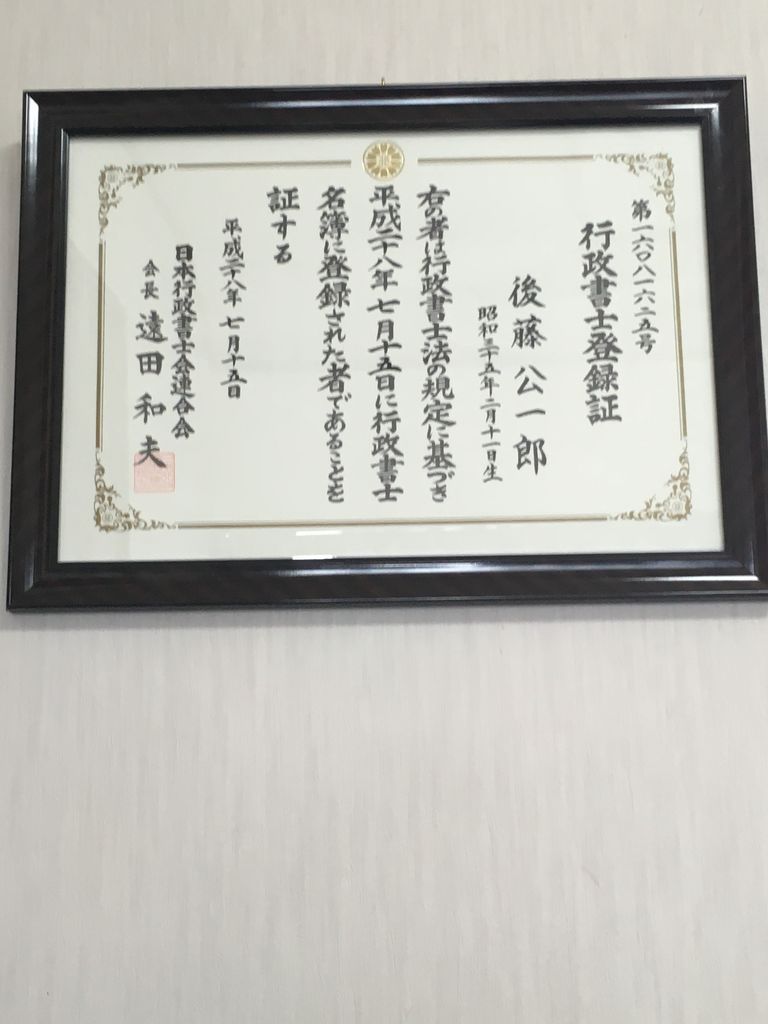 第一六〇八一六二五号
行政書士登録証
後藤公一郎
昭和三十五年二月十一日生
右の者は行政書士法の規定に基づき
平成二十八年七月十五日に行政書士
名簿に登録された者であることを
証する
平成二十八年七月十五日
日本行政書士会連合会
会長 遠田和夫